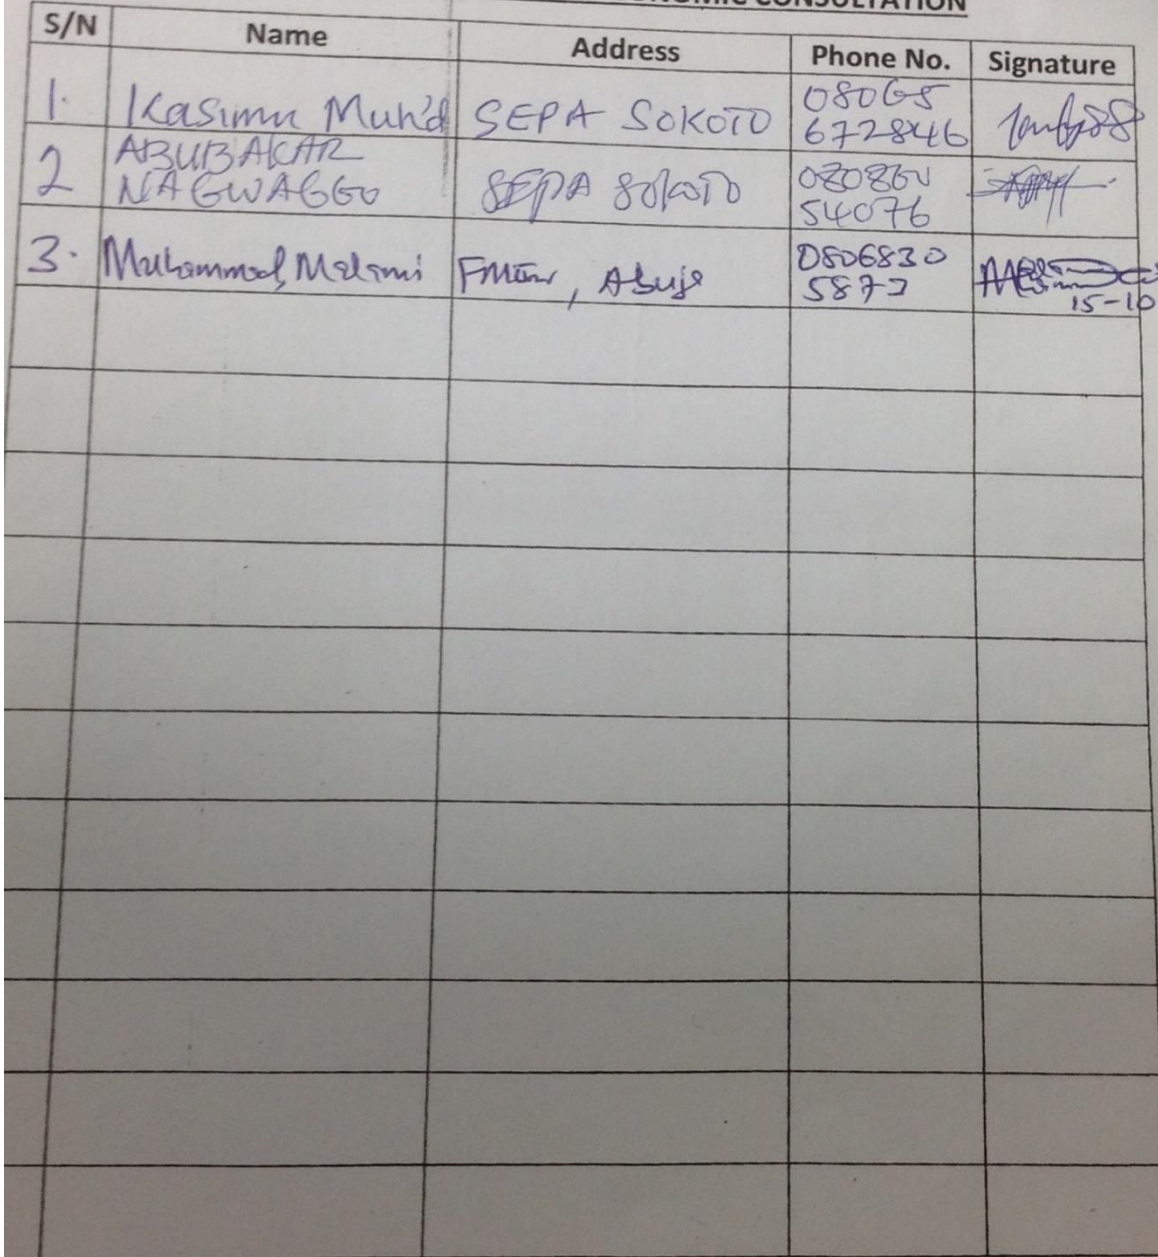 CONSULTATION
S/N Name Address Phone No. Signature
1. Kasimu Muh'd SEPA SOKOTO 08065
672846
2 ABUBAKAR
NAGWAGGO SEPA SOKOTO
54076
3. Muhammad Malami Abuja 0806830
15-10